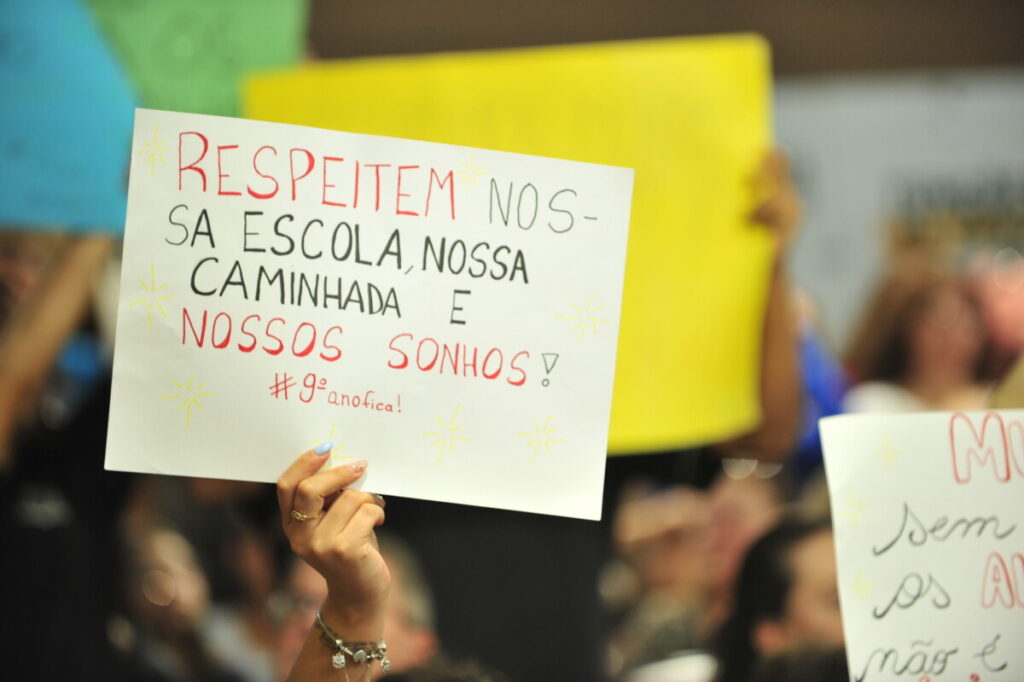 RESPEITEM NOS-
SA ESCOLA, NOSSA
CAMINHADA E
NOSSOS SONHOS!
#9º anofica!
sem
os
não é